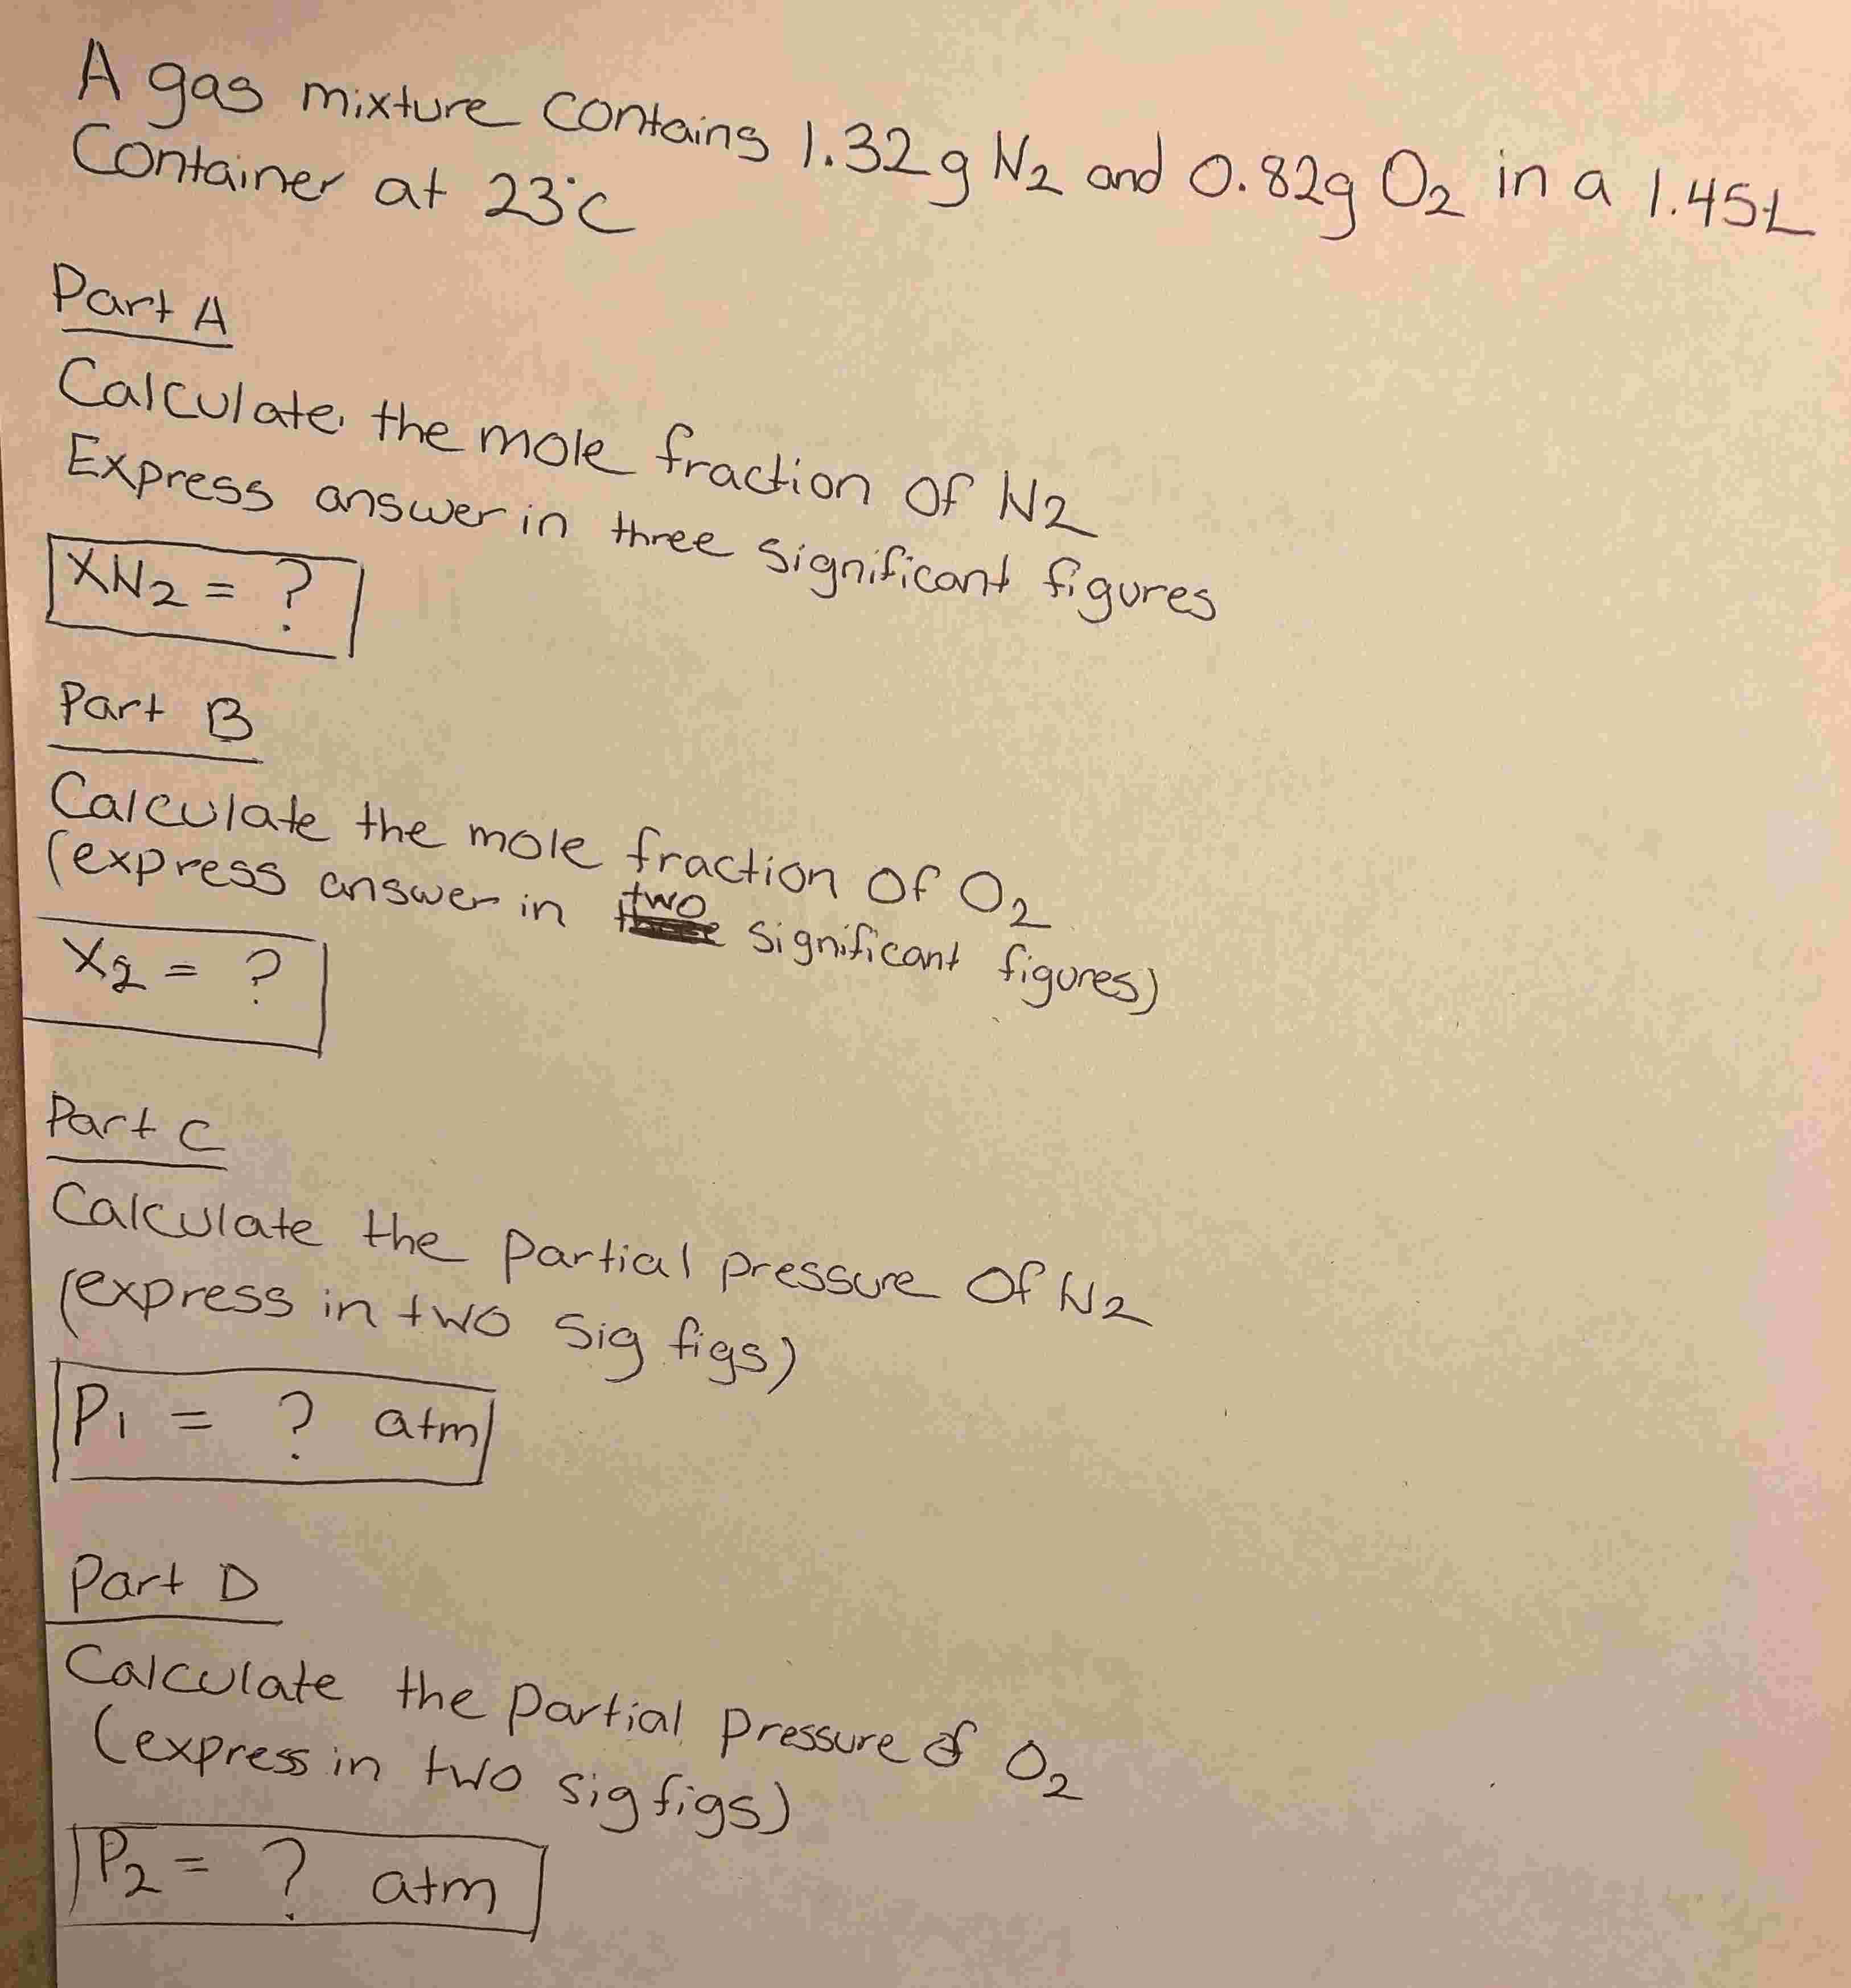 A gas mixture contains 1.32g N2 and 0.82g O2 in a 1.45L
Container at 23°C
Part A
Calculate the mole fraction of N2
Express answer in three significant figures
XN2 = ?
Part B
Calculate the mole fraction of O2
(express answer in two significant figures)
X2 = ?
Part C
Calculate the partial pressure of N2
(express in two sig figs)
P1 = ? atm
Part D
Calculate the partial pressure of O2
(express in two sig figs)
P2 = ? atm